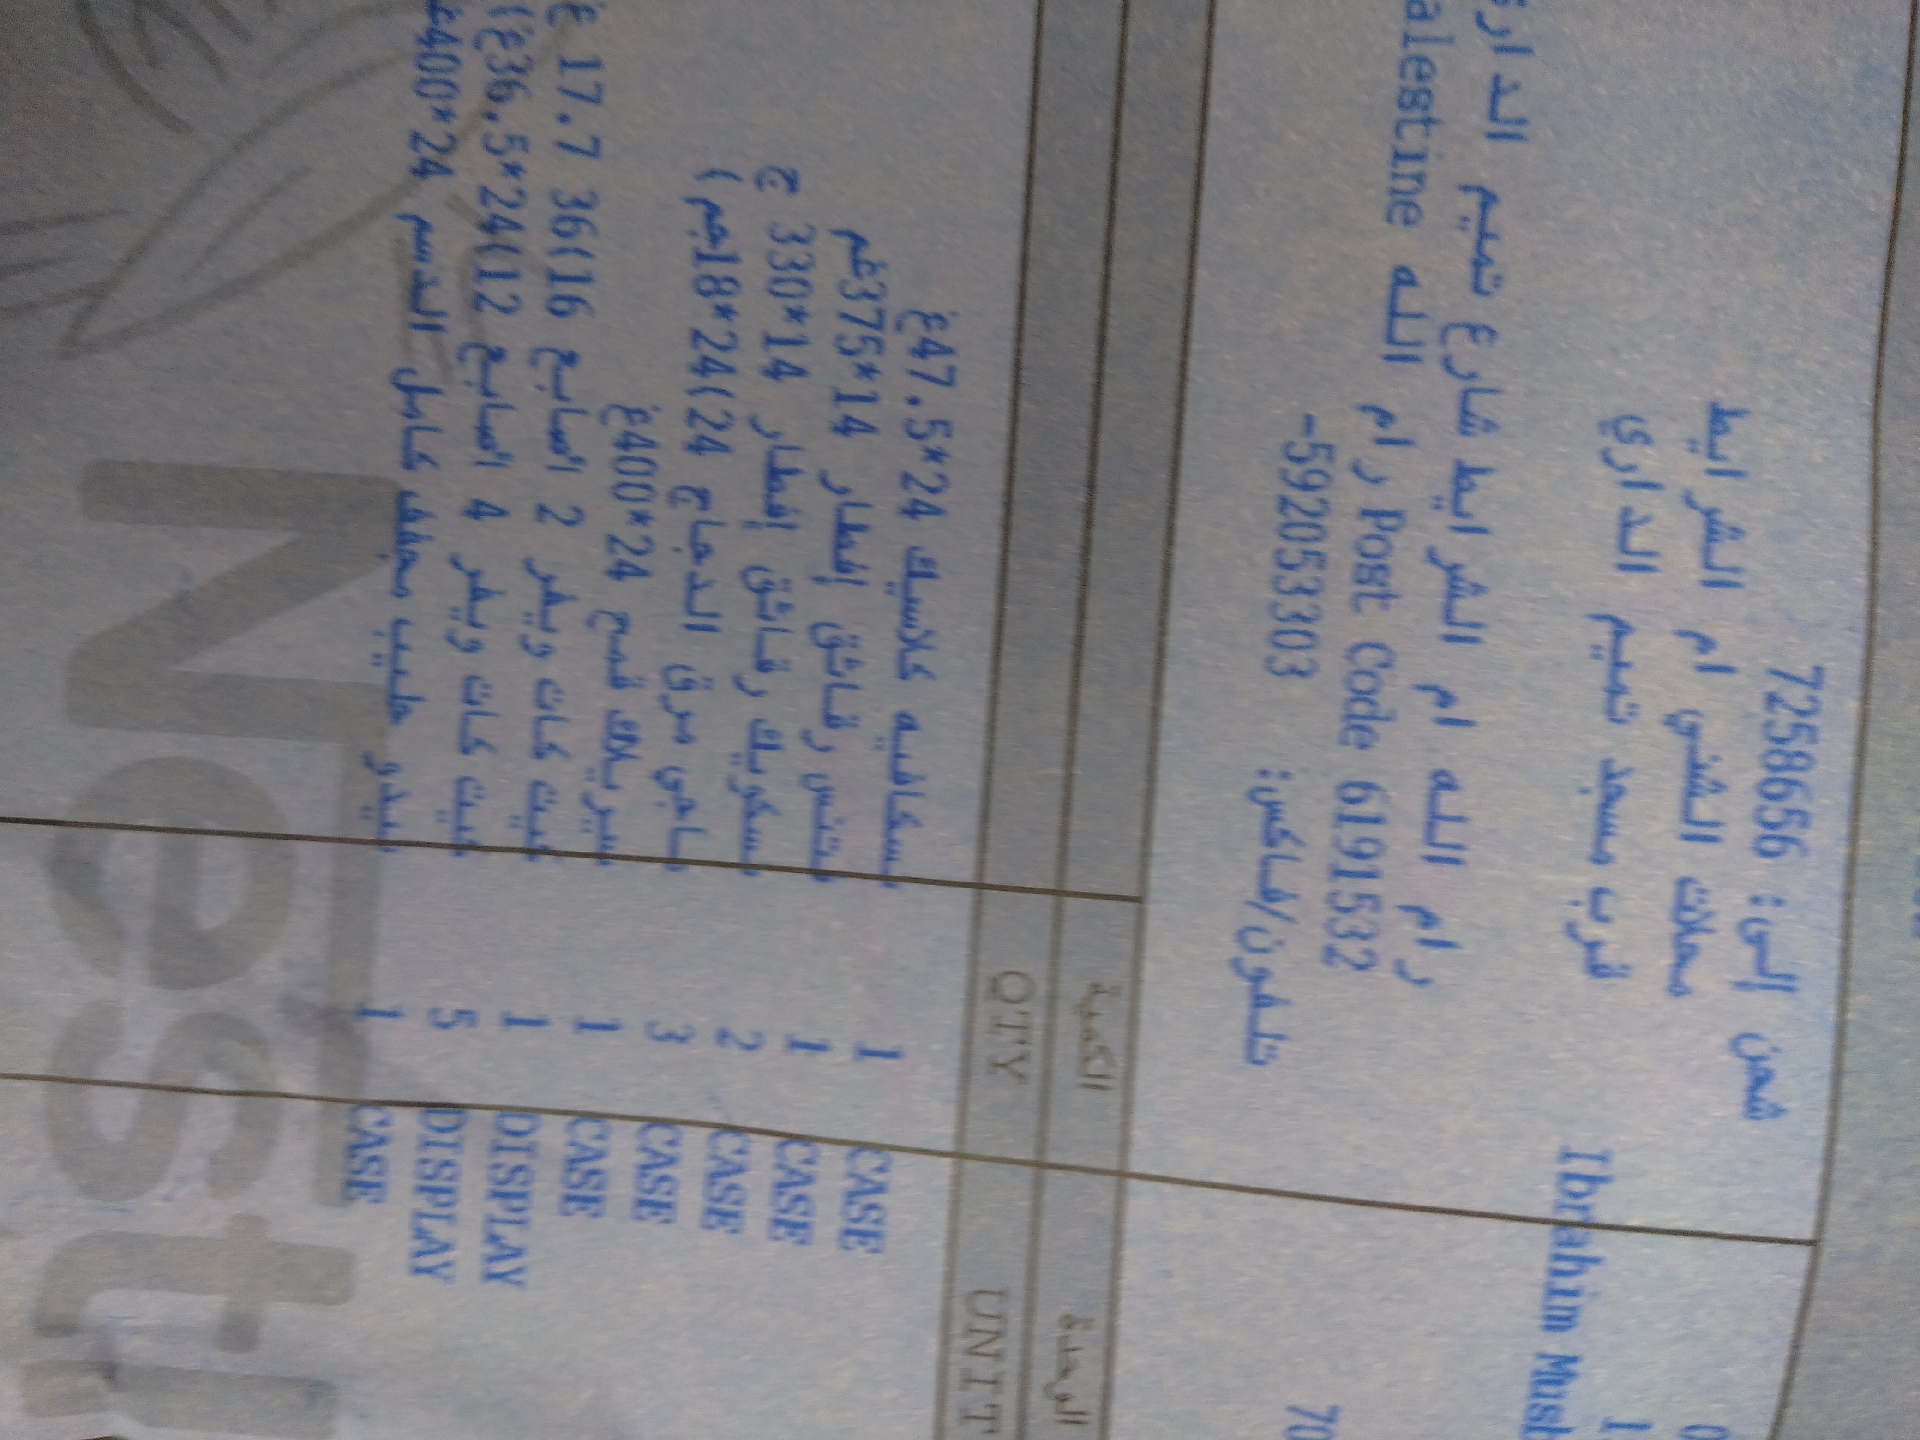 شحن إلى: 7258656
محلات الشني ام الشرايط
قرب مسجد تميم الداري
Ibrahim Mush
رام الله ام الشرايط شارع تميم الداري
رام الله Post Code 6191532
alestine
تلفون/فاكس: -592053303
70
الكمية الوحدة
QTY UNIT
نسكافيه كلاسيك 24*47.5غ 1 CASE
فتنس رقائق إفطار 14*375غم 1 CASE
نسكويك رقائق إفطار 14*330 ج 2 CASE
ماجي مرق الدجاج 24(24*18جم) 3 CASE
سيريلاك قمح 24*400غ 1 CASE
كيت كات ويفر 2 اصابع 16(36 17.7 غ 1 DISPLAY
كيت كات ويفر 4 اصابع 12(24*36.5غ) 5 DISPLAY
نيدو حليب مجفف كامل الدسم 24*400غ 1 CASE
Nestl